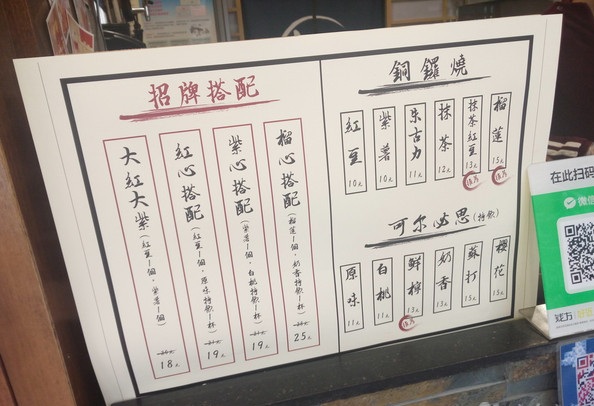 招牌搭配
大紅大紫(紅豆1個,紫薯1個)
18元
紅心搭配(紅豆1個,原味特飲1杯)
19元
紫心搭配(紫薯1個,白桃特飲1杯)
19元
榴心搭配(榴蓮1個,奶香特飲1杯)
25元
銅鑼燒
紅豆 10元
紫薯 10元
朱古力 11元
抹茶 12元
抹茶紅豆 13元
榴蓮 15元
可尔必思(特飲)
原味 11元
白桃 11元
鮮檸 13元
奶香 15元
蘇打 15元
櫻花 15元
在此扫码
微信